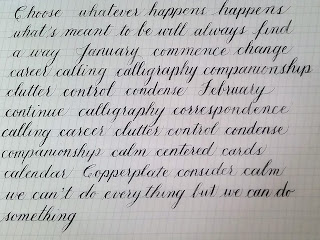 Choose whatever happens happens
what's meant to be will always find
a way January commence change
career calling calligraphy companionship
clutter control condense February
continue calligraphy correspondence
calling career clutter control condense
companionship calm centered cards
calendar Copperplate consider calm
we can't do everything but we can do
something